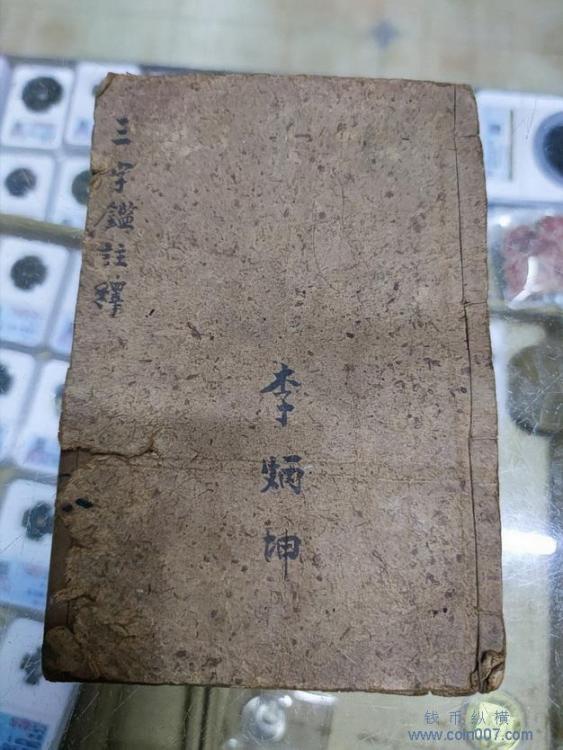 三字鑑註釋
李炳坤
钱币纵横
www.coin007.com